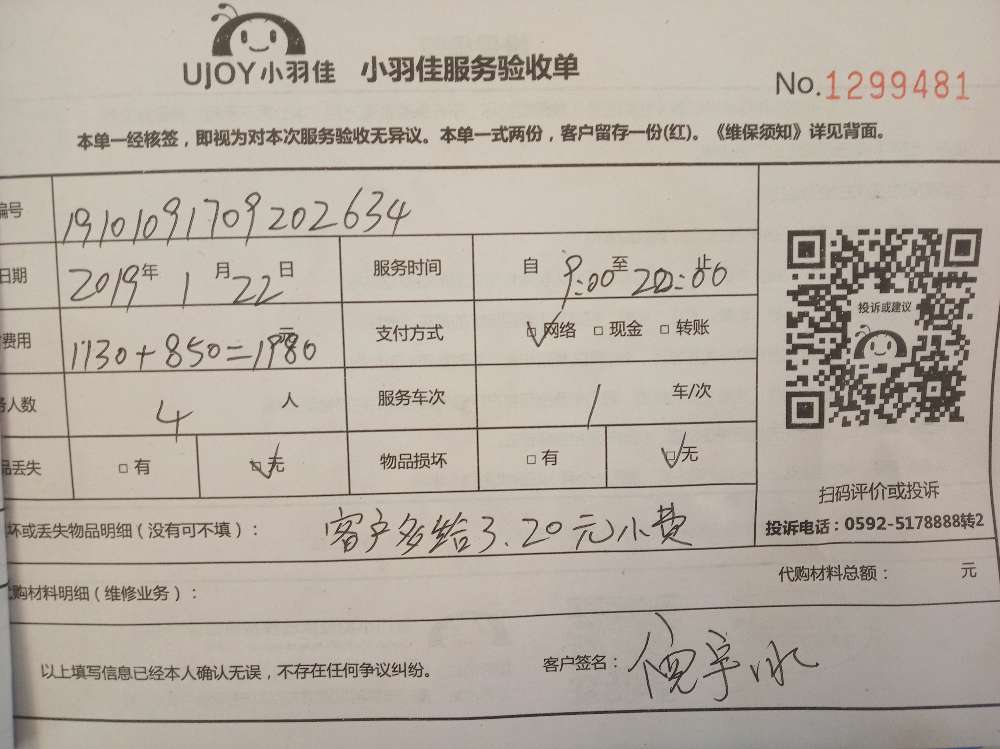 UJOY小羽佳 小羽佳服务验收单
No.1299481
本单一经核签，即视为对本次服务验收无异议。本单一式两份，客户留存一份(红)。《维保须知》详见背面。
编号 19101091709202634
日期 2019年 1月22日 服务时间 自 9:00至 20:00止
费用 1130+850=1980元 支付方式 ☑网络 □现金 □转账
务人数 4 人 服务车次 1 车/次
品丢失 □有 ☑无 物品损坏 □有 ☑无
投诉或建议
扫码评价或投诉
投诉电话：0592-5178888转2
坏或丢失物品明细（没有可不填）： 客户多给了.20元小费
代购材料明细（维修业务）： 代购材料总额： 元
以上填写信息已经本人确认无误，不存在任何争议纠纷。 客户签名：倪宇冰